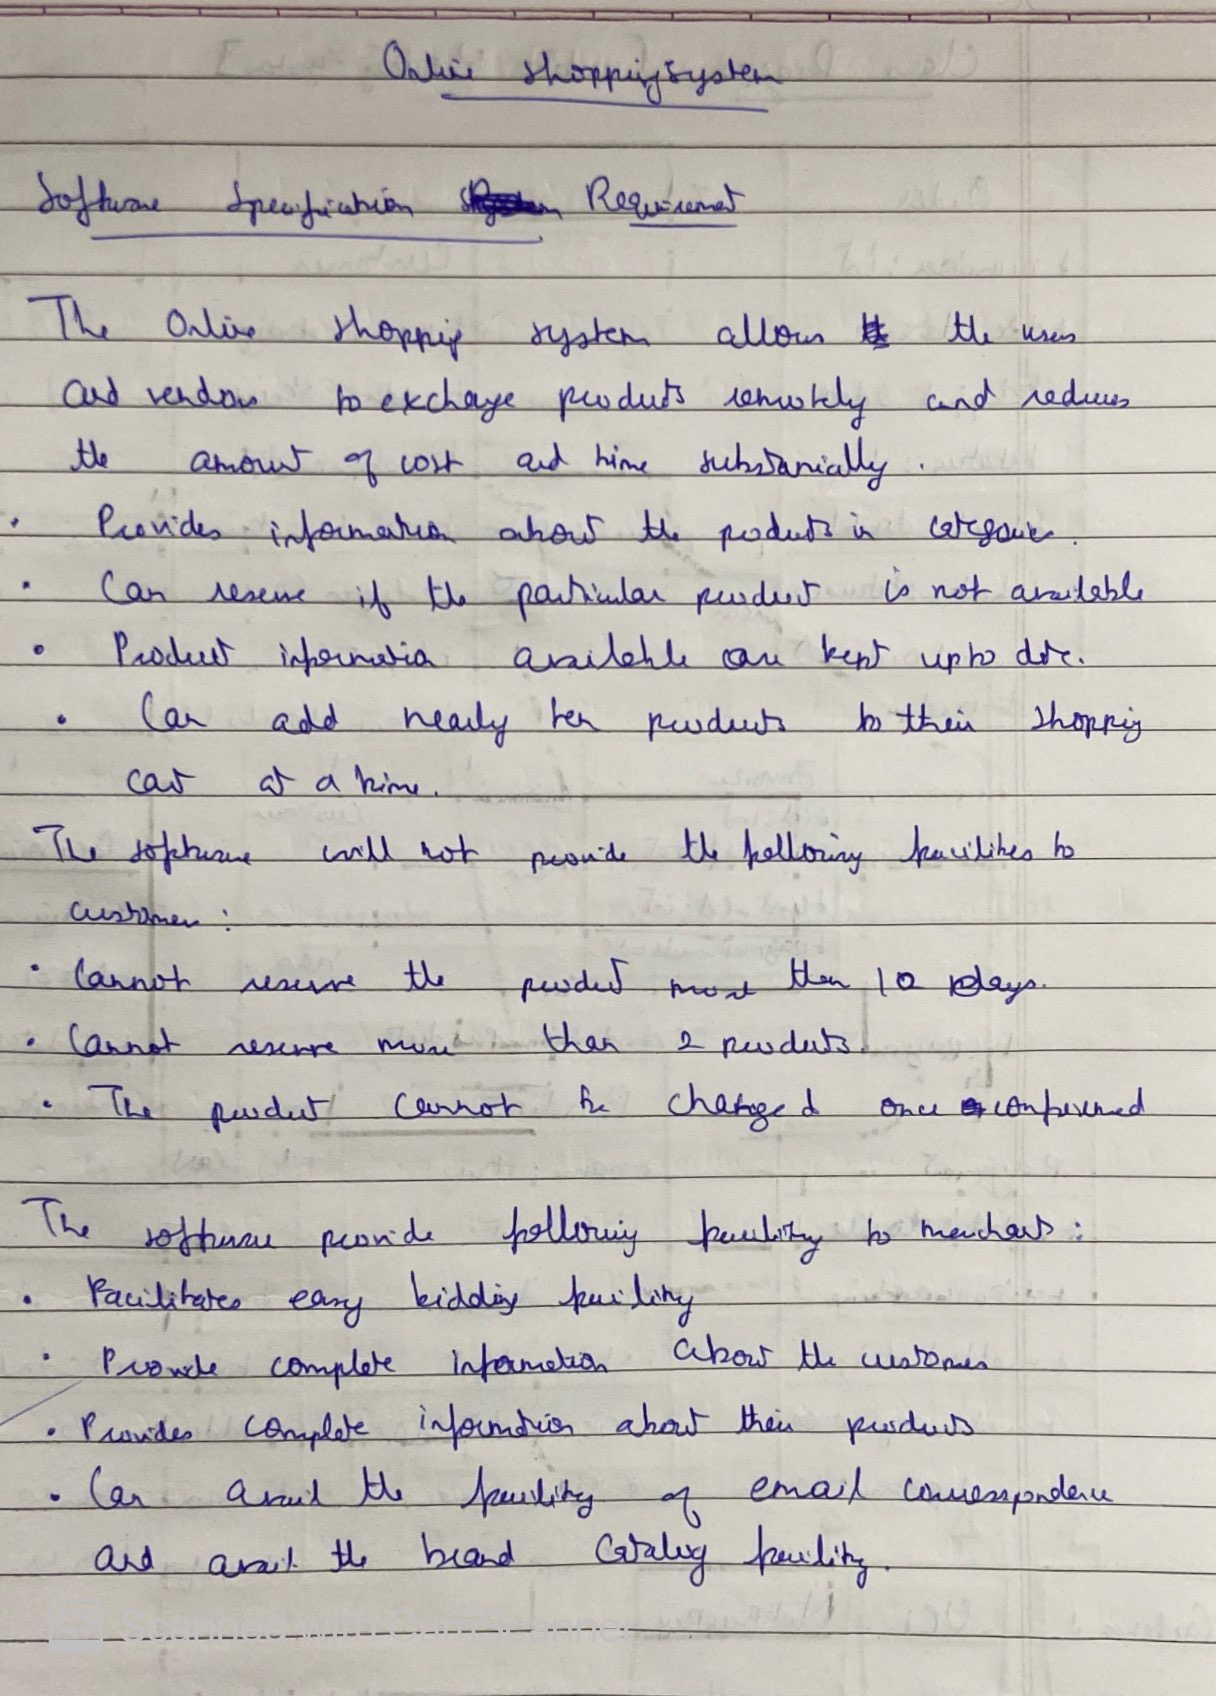 Online shopping system
Software Specification Requirement
The Online shopping system allows the users
and vendors to exchange products remotely and reduces
the amount of cost and time substanially.
• Provides information about the products in categories.
• Can reserve if the particular product is not available
• Product information available are kept upto date.
• Can add nearly ten products to their shopping
cart at a time.
The software will not provide the following facilities to
customer:
• Cannot reserve the product more than 10 days.
• Cannot reserve more than 2 products.
• The product cannot be changed once confirmed
The software provide following facility to merchants:
• Facilitates easy bidding facility
• Provide complete information about the customer
• Provides complete information about their products
• Can avail the facility of email correspondence
and avail the brand catalog facility.